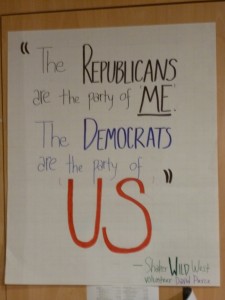 "The REPUBLICANS
are the party of ME.
The DEMOCRATS
are the party of
US"
— Shaker WILD West
volunteer